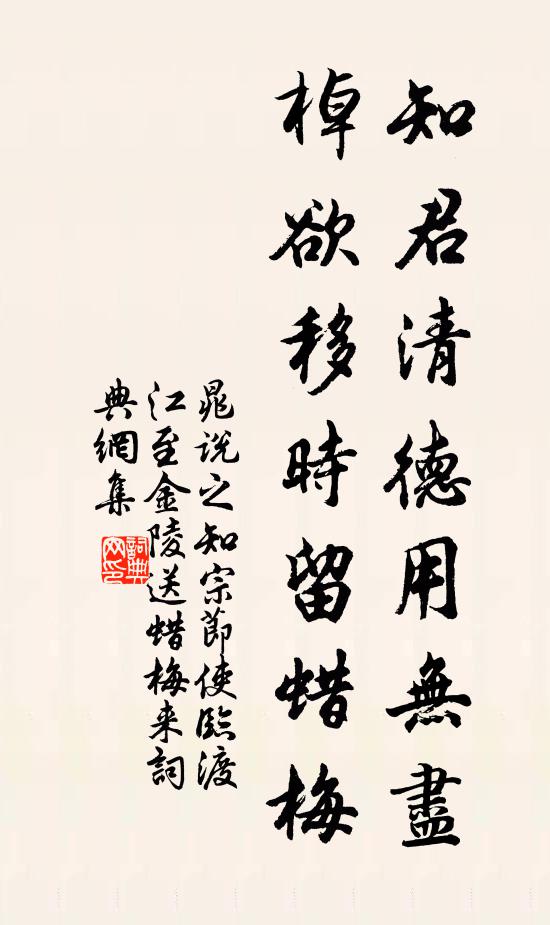 知君清德用無盡
棹欲移時留蜡梅
晁說之知宗節使臨渡
江至金陵送蜡梅来詞
典網集
詞典
网印